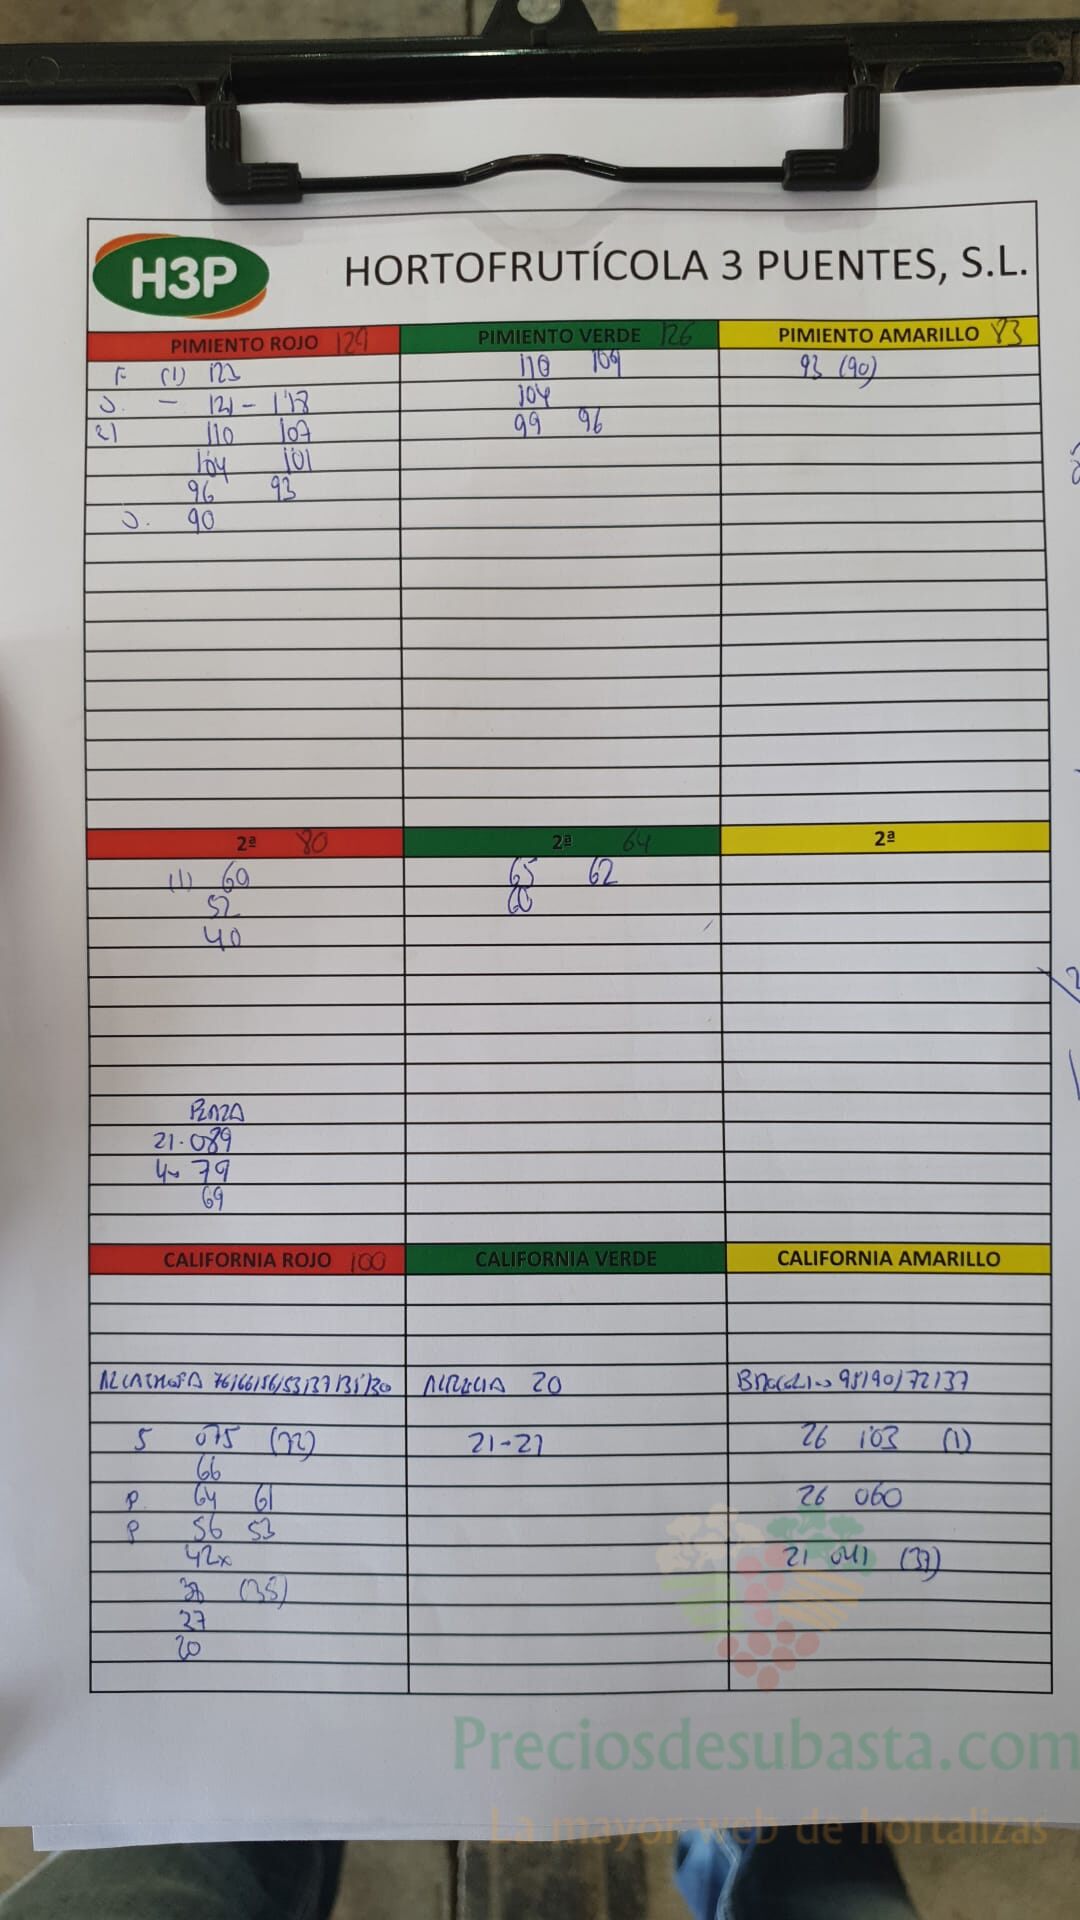 H3P
HORTOFRUTÍCOLA 3 PUENTES, S.L.
PIMIENTO ROJO 129
F (1) 123
J. - 121 - 118
21 110 107
104 101
96 93
J. 90
PIMIENTO VERDE 126
110 109
104
99 96
PIMIENTO AMARILLO 83
93 (90)
2ª 80
(1) 69
52
40
2ª 64
65 62
60
2ª
21.089
79
69
CALIFORNIA ROJO 100
ALCACHOFA 76/66/56/53/37/35/30
5 075 (72)
66
P. 64 61
P 56 53
42x
(35)
27
20
CALIFORNIA VERDE
20
21-27
CALIFORNIA AMARILLO
98/90/72/37
26 103 (1)
26 060
21 041 (37)
Preciosdesubasta.com
La mayor web de hortalizas